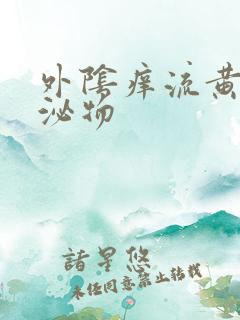 外陰痒流黄
泌物
諸星悠
未经同意禁止转载